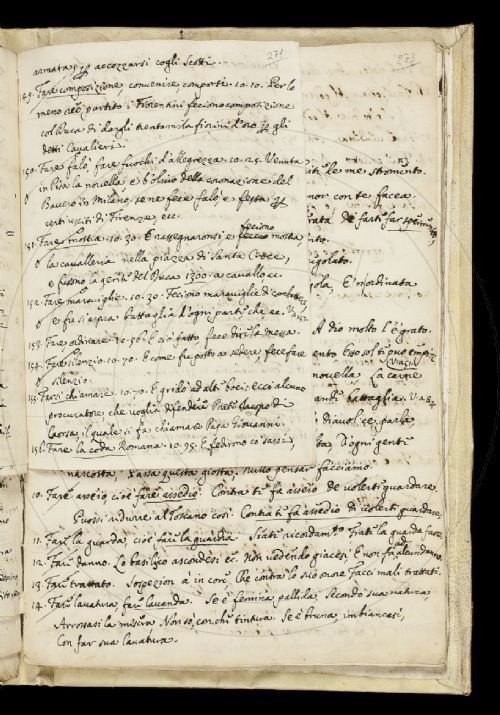 271
273
armata, p accozzarsi cogli Scotti.
149. Fare composizione convenire comporti. 10. 10. Per lo
meno reo partito i Fiorentini feciono composizione
col Duca di dargli trentamila fiorini d'oro p gli
detti Cavalieri.
150. Fare falò, fare fuochi d'allegrezza. 10. 25. Venuta
in Pisa la novella e l'olivo della coronazione del
Bavero in Milano, se ne fece falò, e festa p
certi usciti di Firenze ecc.
151. Fare mostra. 10. 30. E rassegnaronsi e feciono mostra
la cavalleria nella piazza di Santa Croce,
e furono la gente del Duca 1300. a cavallo ec.
152. Fare maraviglie. 10. 30. Feciono maraviglie di combattere
e fu sì aspra battaglia d'ogni parte che ec. V. 157.
153. Fare ordinare. 10. 56. E ciò fatto fece dire la messa.
154. Fare silenzio. 10. 70. E come fu posto a sedere fece fare
silenzio.
155. Farsi chiamare. 10. 70. E gridò ad alti boci: Ecci alcuno
procuratore che voglia difendere Prete Jacopo di
Caorsa, il quale si fa chiamare Papa Giovanni.
156. Fare la coda Romana. 10. 95. E fedirono co' sassi,
le me stromento.
nor con te facea
rata de farti far
nto.
golato.
gola, E' inordinata
A dio molto l'è grato.
ento Esso sol ti può empire
novella. La carne
di battaglia. V. a 84
Diavol se parla
ta D'ogni gente
nascosta Passa questa giosta, nullo pensar facciamo.
10. Fare asseio, cioè fare assedio. Contra ti fa asseio de volerti guardare
Puossi ridurre al Toscano così: Contra ti fa assedio di volerti guardare
11. Fare la guarda cioè fare la guardia. Stati ricordamto Frati la guarda fare.
12. Fare danno. Lo basilico ascondesi ec. Non vedendo giacesi, E non fa ad alcun danno.
13. Fare trattato. Sospezion à in core Che contra lo suo onore Facci mali trattati.
14. Fare lavatura fare lavanda. Se è femina pallida, Secondo sua natura
Arrossasi la misera Non so con che tintura. Se è bruna imbiancasi,
Con far sua lavatura.